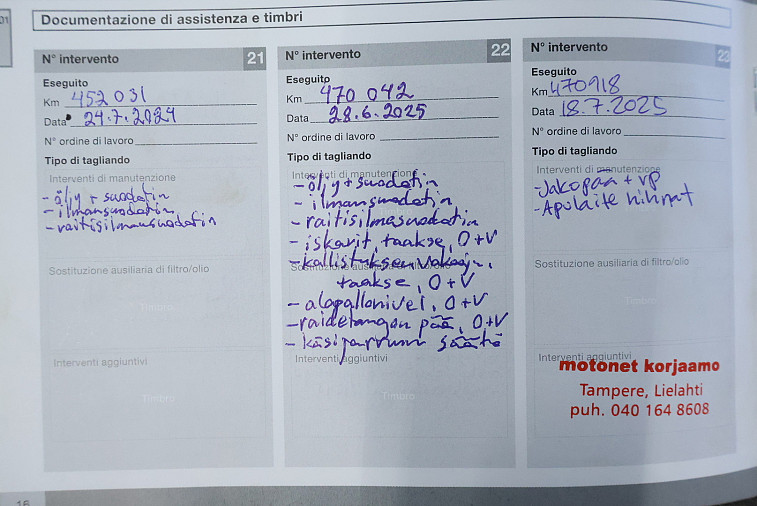 Documentazione di assistenza e timbri
N° intervento 21
Eseguito
Km 452 031
Data 24.7.2024
N° ordine di lavoro
Tipo di tagliando
Interventi di manutenzione
- öljy + suodatin
- ilmansuodatin
- raitisilmansuodatin
Sostituzione ausiliaria di filtro/olio
Timbro
Interventi aggiuntivi
Timbro
N° intervento 22
Eseguito
Km 470 042
Data 28.6.2025
N° ordine di lavoro
Tipo di tagliando
Interventi di manutenzione
- öljy + suodatin
- ilmansuodatin
- raitisilmasuodatin
- iskarit, taakse, O+V
- kallistuksen vakaaj.
Sostituzione ausiliaria di filtro/olio
taakse, O+V
- alapallonivel, O+V
- raidetangon pää, O+V
- käsijarrun säätö
Interventi aggiuntivi
Timbro
N° intervento 23
Eseguito
Km 470918
Data 18.7.2025
N° ordine di lavoro
Tipo di tagliando
Interventi di manutenzione
- Jakopää + vp
- Apulaite hihnat
Sostituzione ausiliaria di filtro/olio
Timbro
Interventi aggiuntivi
motonet korjaamo
Tampere, Lielahti
puh. 040 164 8608
16